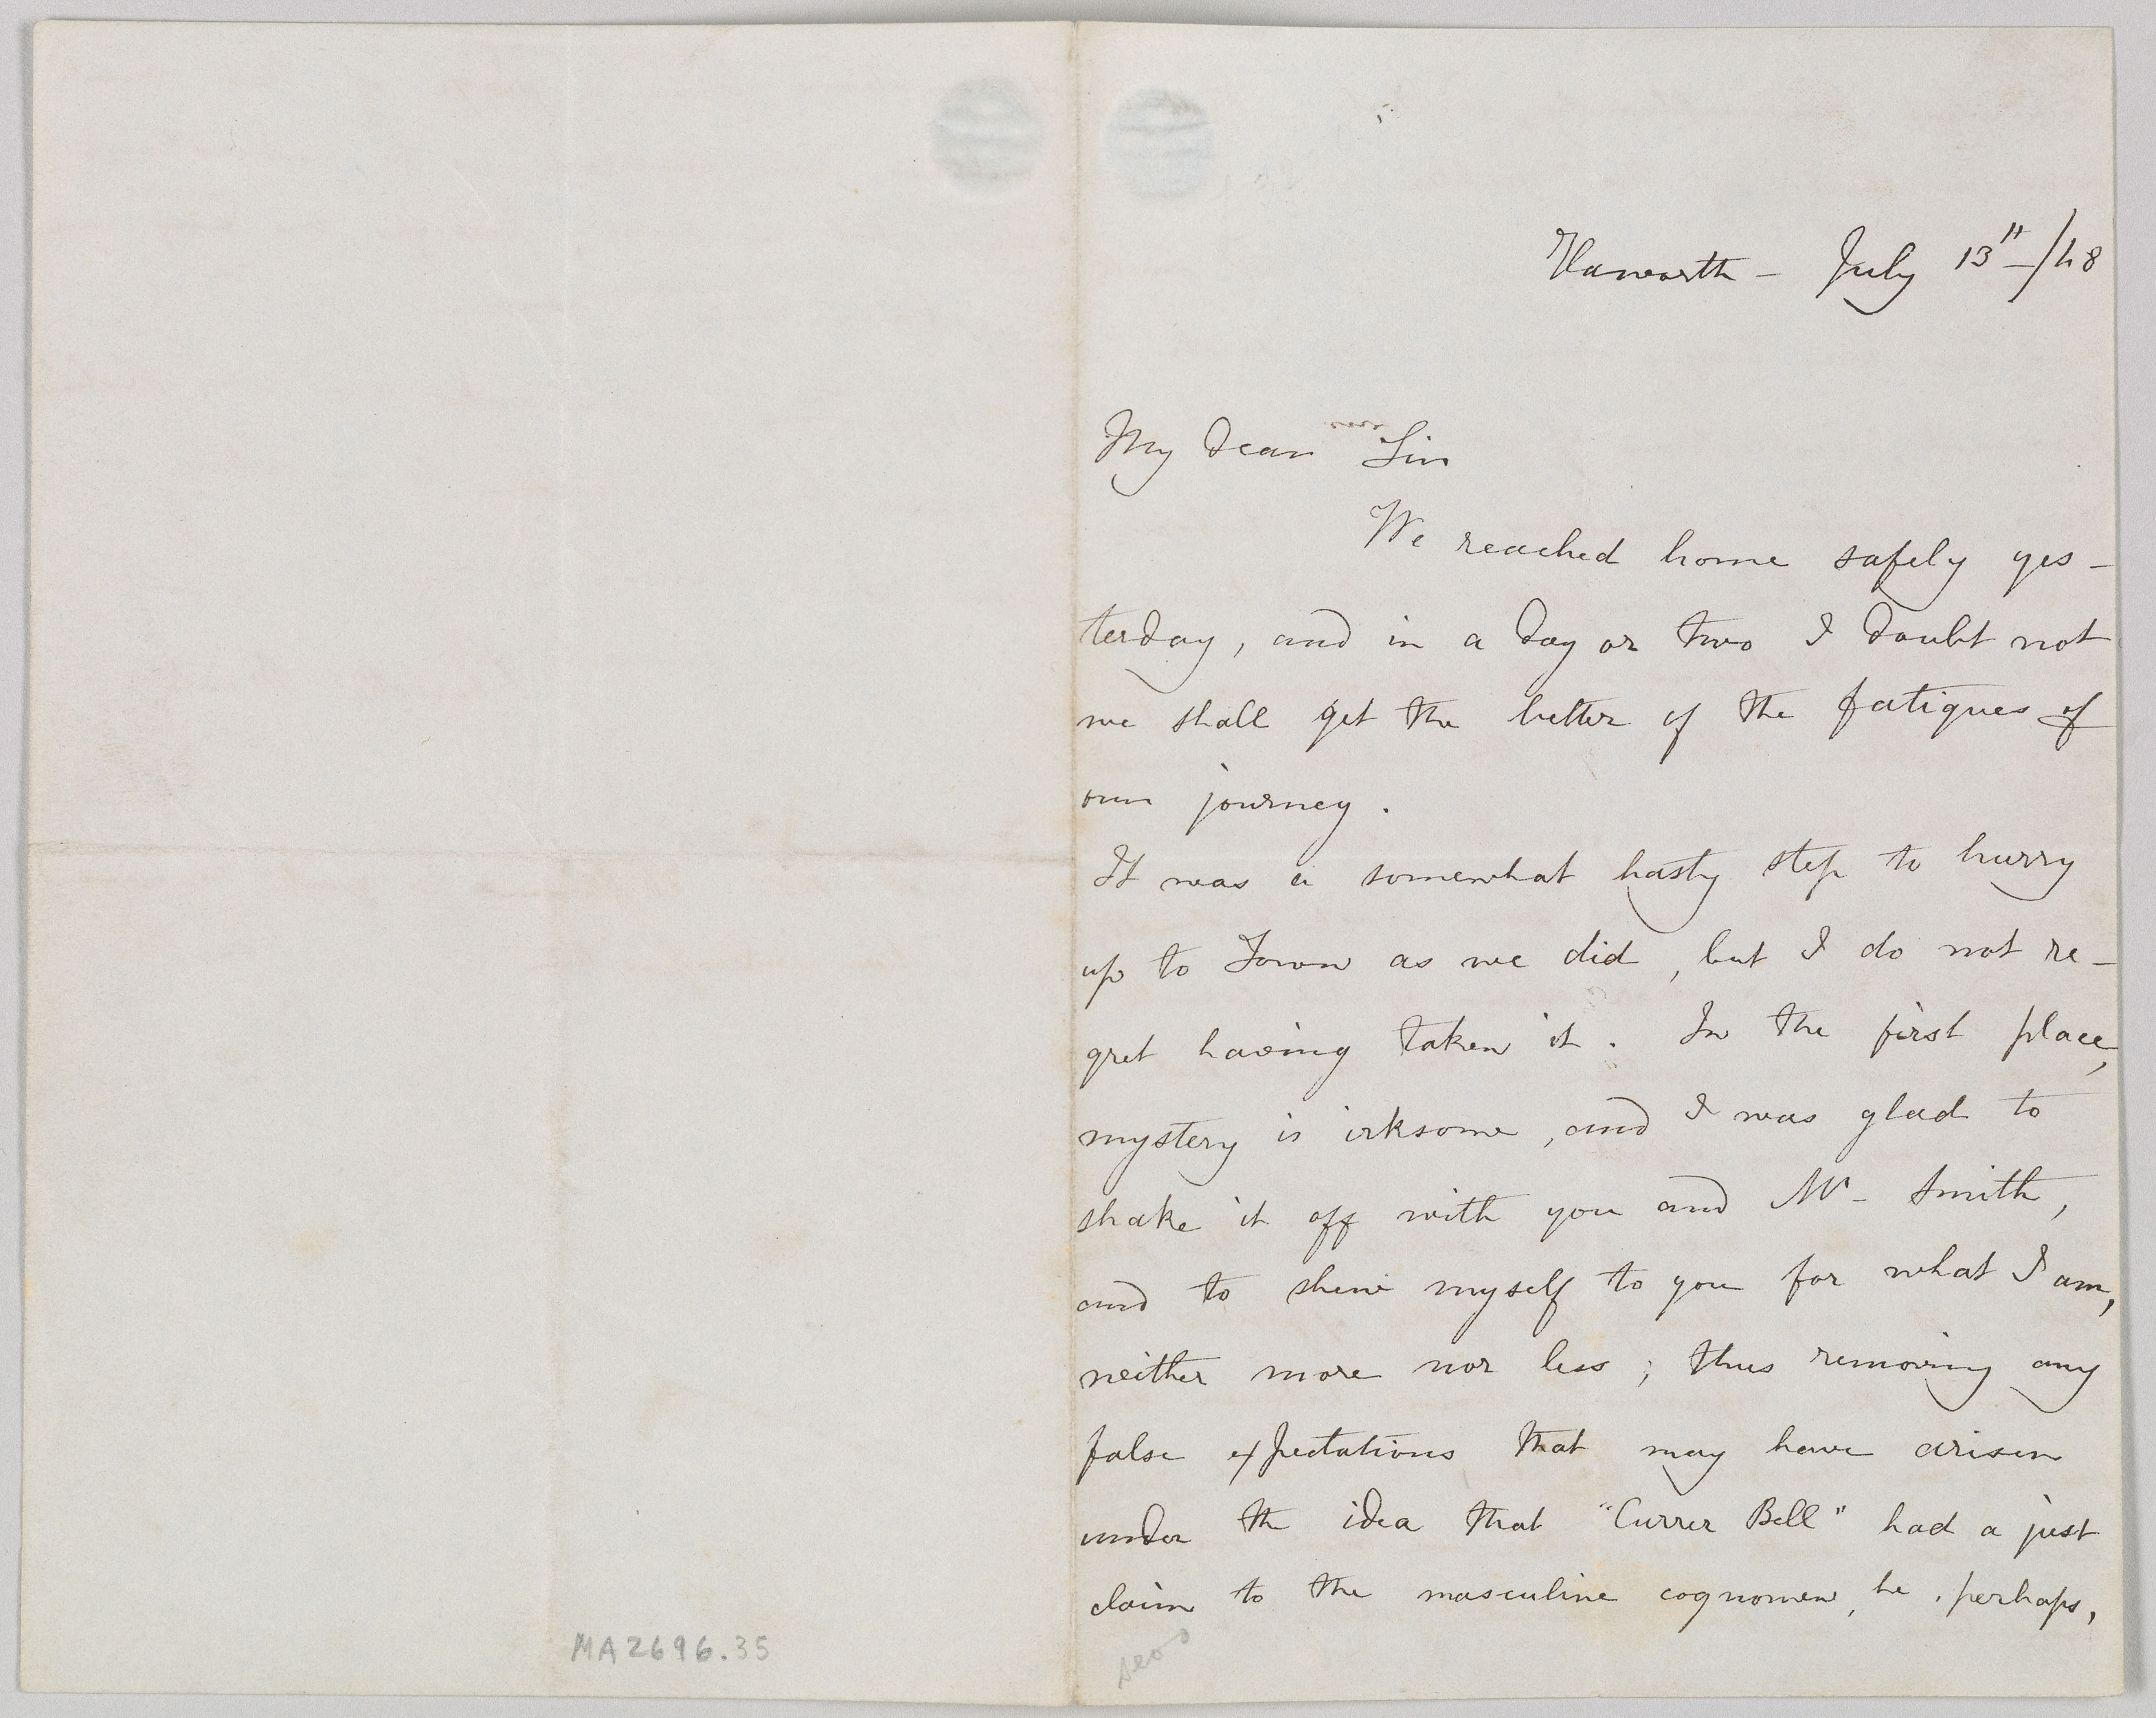 Haworth - July 13th/48
My dear Sir
We reached home safely yes-
terday, and in a day or two I doubt not
we shall get the better of the fatigues of
our journey.
It was a somewhat hasty step to hurry
up to Town as we did, but I do not re-
gret having taken it. In the first place,
mystery is irksome, and I was glad to
shake it off with you and Mr- Smith,
and to shew myself to you for what I am,
neither more nor less; thus removing any
false expectations that may have arisen
under the idea that "Currer Bell" had a just
claim to the masculine cognomen, he, perhaps,
MA2696.35